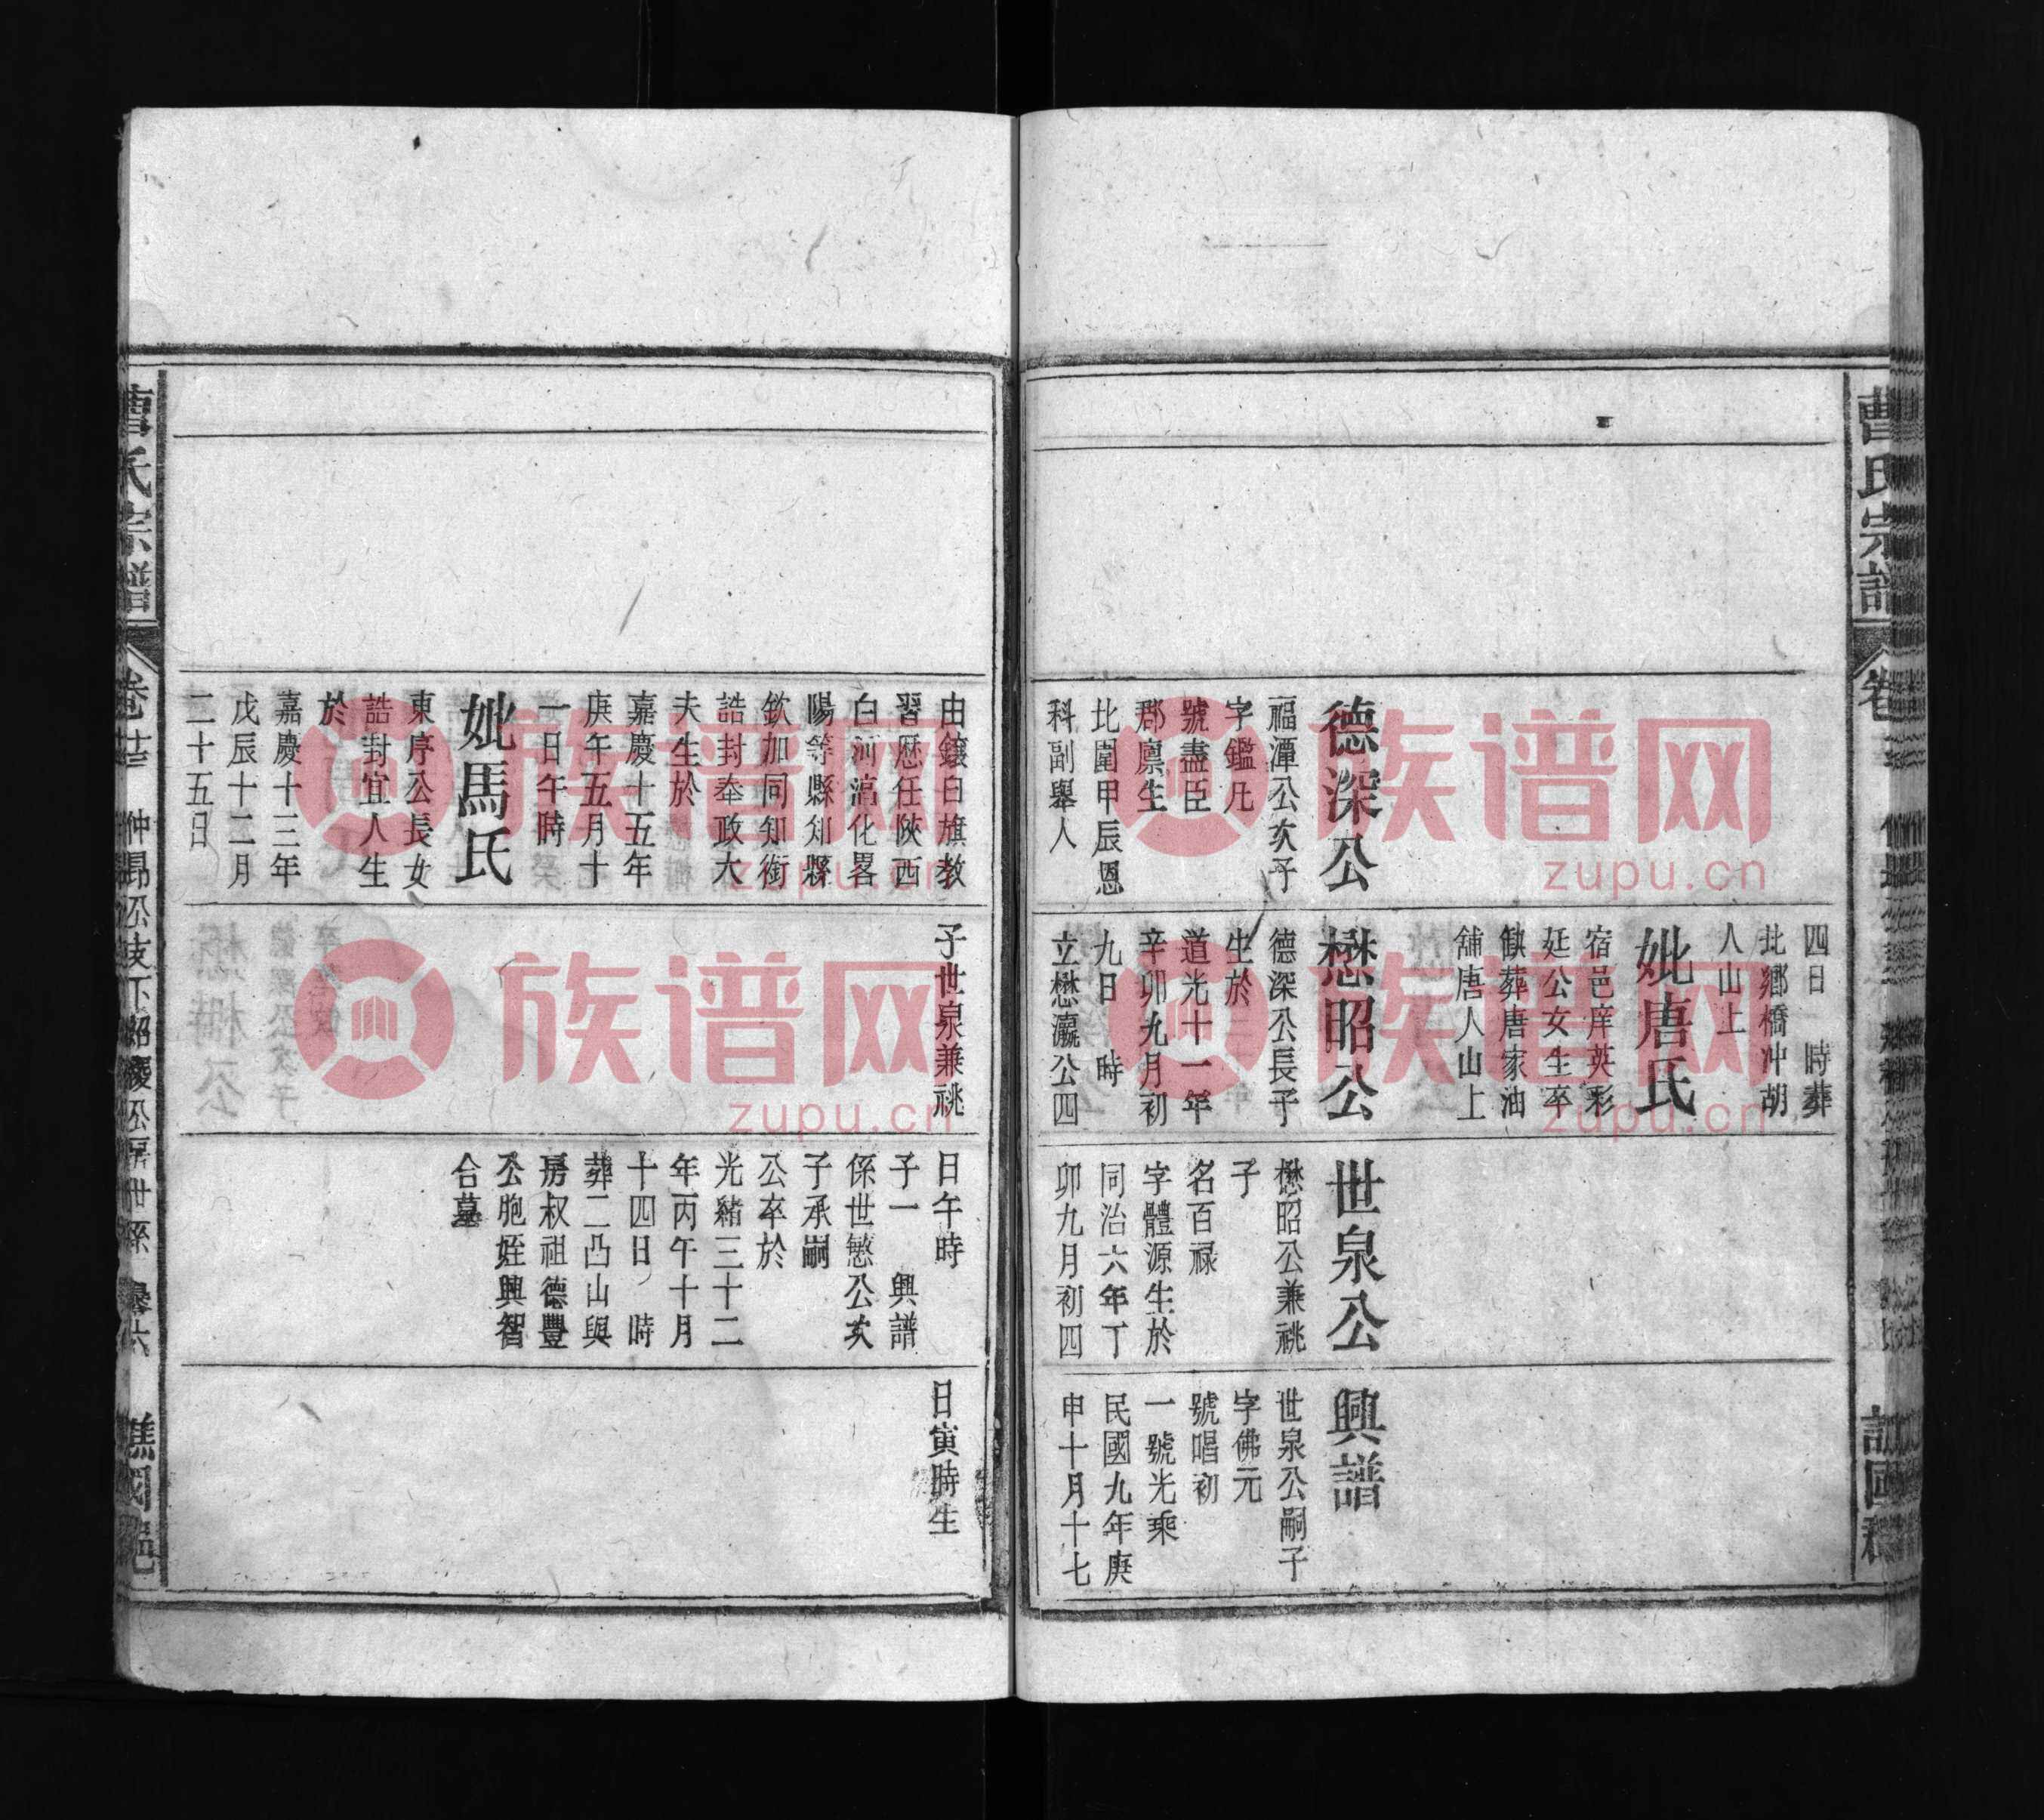 曹氏宗譜
四日　時葬
北鄉橋冲胡
人山上
妣唐氏
宿邑庠英彩
廷公女生卒
缺葬唐家油
舖唐人山上
德深公
福潭公次子
字鑑凡
號盡臣
郡廩生
北圍甲辰恩
科副舉人
懋昭公
德深公長子
生於
道光十一年
辛卯九月初
九日　時
立懋瀛公四
世泉公
懋昭公兼祧
子
名百禄
字體源生於
同治六年丁
卯九月初四
興譜
世泉公嗣子
字佛元
號唱初
一號光乘
民國九年庚
申十月十七
由鑲白旗教
習歷任陝西
白河滈化畧
陽等縣知縣
欽加同知銜
誥封奉政大
夫生於
嘉慶十五年
庚午五月十
一日午時
妣馬氏
東序公長女
誥封宜人生
於
嘉慶十三年
戊辰十二月
二十五日
子世泉兼祧
日午時
子一　興譜
係世慜公次
子承嗣
公卒於
光緒三十二
年丙午十月
十四日　時
葬二凸山與
房叔祖德豐
公胞姪興智
合墓
日寅時生
曹氏宗譜
仲昂公支下紹慶公房世系
譙國
族谱网
zupu.cn
族谱网
zupu.cn
族谱网
zupu.cn
族谱网
zupu.cn